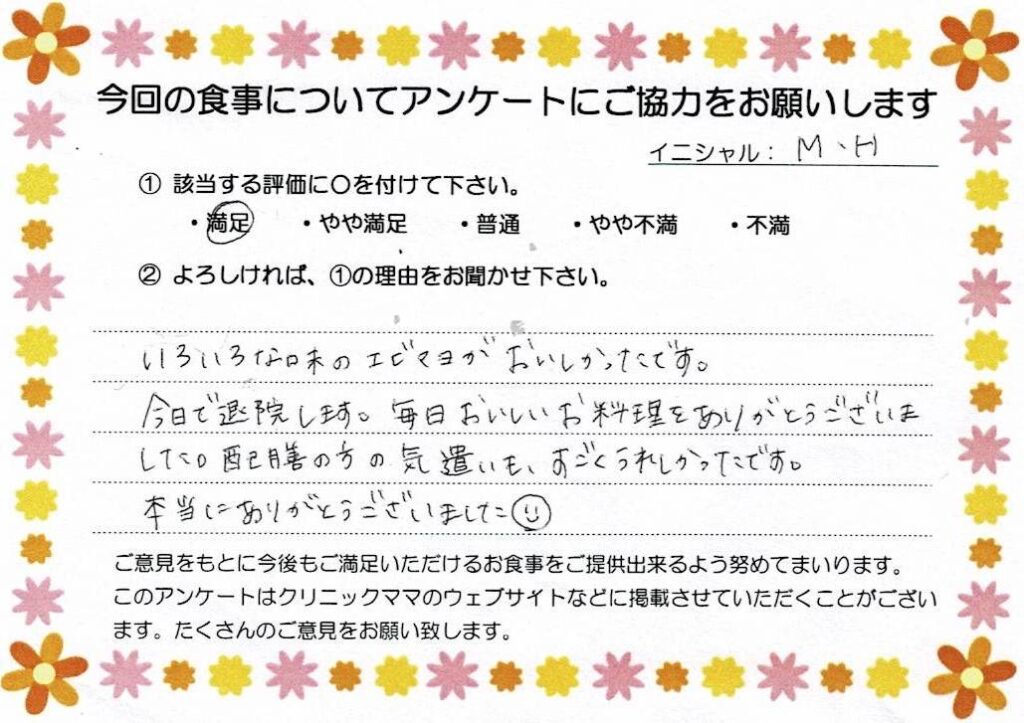 今回の食事についてアンケートにご協力をお願いします
イニシャル： M、H
① 該当する評価に〇を付けて下さい。
・満足 ・やや満足 ・普通 ・やや不満 ・不満
② よろしければ、①の理由をお聞かせ下さい。
いろいろな味のエビマヨがおいしかったです。
今日で退院します。毎日おいしいお料理をありがとうございま
した。配膳の方の気遣いも、すごくうれしかったです。
本当にありがとうございました
ご意見をもとに今後もご満足いただけるお食事をご提供出来るよう努めてまいります。
このアンケートはクリニックママのウェブサイトなどに掲載させていただくことがござい
ます。たくさんのご意見をお願い致します。